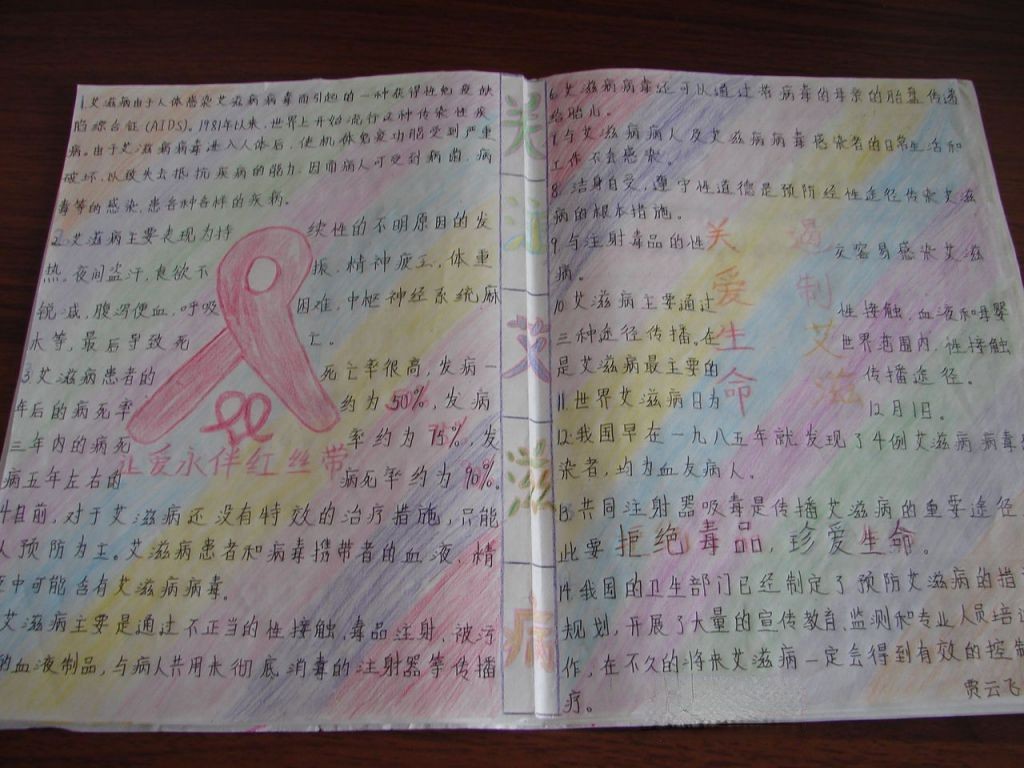 1.艾滋病由于人体感染艾滋病病毒而引起的一种获得性免疫缺
陷综合征(AIDS)。1981年以来,世界上开始流行这种传染性疾
病。由于艾滋病病毒进入人体后,使机体免疫功能受到严重
破坏,以致失去抵抗疾病的能力,因而病人可受到病菌,病
毒等的感染,患各种各样的疾病。
2.艾滋病主要表现为持续性的不明原因的发
热,夜间盗汗,食欲不振,精神疲乏,体重
锐减,腹泻便血,呼吸困难,中枢神经系统麻
木等,最后导致死亡。
3.艾滋病患者的死亡率很高,发病一
年后的病死率约为50%,发病
三年内的病死率约为75%,发
病五年左右的病死率约为90%。
让爱永伴红丝带
4.目前,对于艾滋病还没有特效的治疗措施,只能
人预防为主。艾滋病患者和病毒携带者的血液、精
中可能含有艾滋病病毒。
艾滋病主要是通过不正当的性接触,毒品注射,被污
的血液制品,与病人共用未彻底消毒的注射器等传播
关注艾滋病
6.艾滋病病毒还可以通过带病毒的母亲的胎盘传递
给胎儿。
7.与艾滋病病人及艾滋病病毒感染者的日常生活和
工作不会感染。
8.洁身自爱,遵守性道德是预防经性途径传染艾滋
病的根本措施。
9.与注射毒品的性交容易感染艾滋
病。
10.艾滋病主要通过性接触,血液和母婴
三种途径传播。在世界范围内,性接触
是艾滋病最主要的传播途径。
11.世界艾滋病日为12月1日。
关爱生命
遏制艾滋
12.我国早在一九八五年就发现了4例艾滋病病毒
染者,均为血友病人。
13.共同注射器吸毒是传播艾滋病的重要途径
此要拒绝毒品,珍爱生命。
14.我国的卫生部门已经制定了预防艾滋病的措
规划,开展了大量的宣传教育,监测和专业人员培
作,在不久的将来艾滋病一定会得到有效的控制
疗。
贾云飞